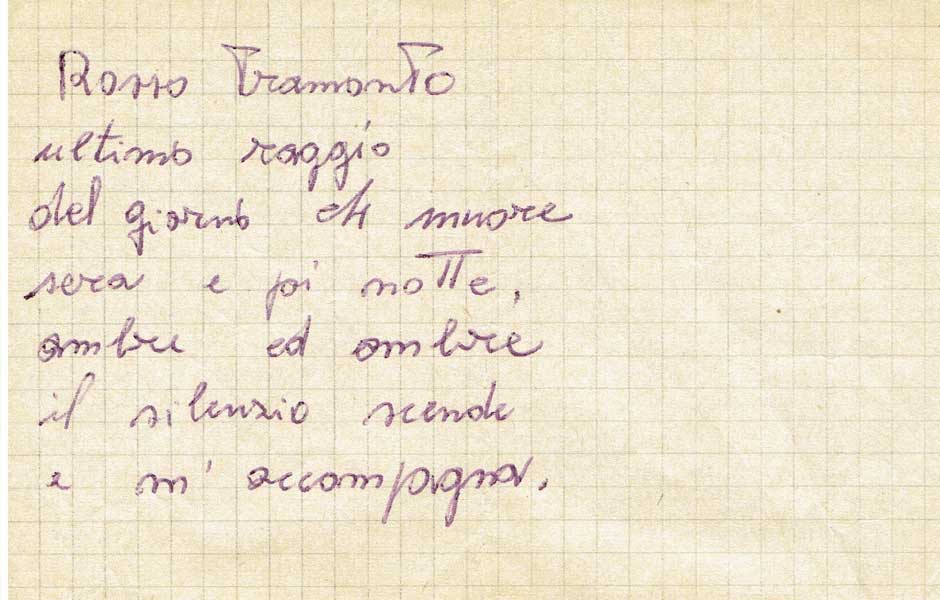 Rosso Tramonto
ultimo raggio
del giorno ch muore
sera e pi notte,
ombre ed ombre
il silenzio scende
e m'accompagna.